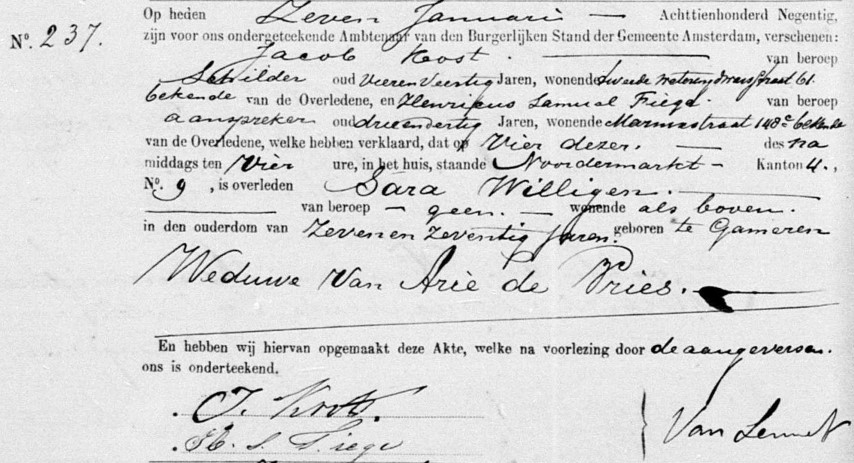 Nº. 237.
Op heden Zeven Januari — Achttienhonderd Negentig,
zijn voor ons ondergeteekende Ambtenaar van den Burgerlijken Stand der Gemeente Amsterdam, verschenen:
Jacob — van beroep
Schilder oud vierenveertig Jaren, wonende tweede weteringdwarsstraat 61.
bekende van de Overledene, en Henricus Samuel Fiege. van beroep
aanspreker oud drieendertig Jaren, wonende Marnixstraat 148c bekende
van de Overledene, welke hebben verklaard, dat op Vier dezer. — des na
middags ten Vier ure, in het huis, staande Noordermarkt — Kanton 4.,
Nº. 9, is overleden Sara Willigen. —
— van beroep — geen. — wonende als boven.
in den ouderdom van Zevenen zeventig Jaren. geboren te Gameren
Weduwe van Arie de Vries. —
En hebben wij hiervan opgemaakt deze Akte, welke na voorlezing door de aangevers en.
ons is onderteekend.
J.
H. S. Fiege
Van Lennep